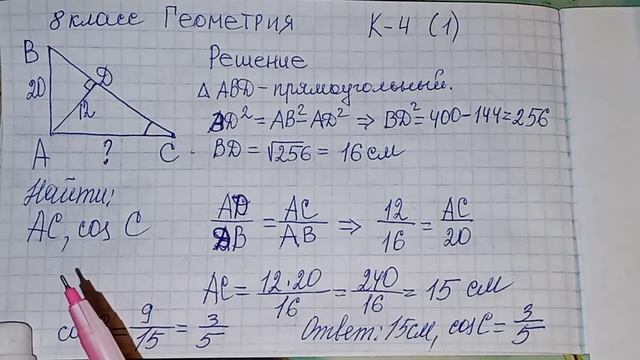 8 класс Геометрия К-4 (1)
B
D
20
12
A ? C
Решение
△ ABD - прямоугольный.
BD² = AB² - AD² ⇒ BD² = 400 - 144 = 256
BD = √256 = 16 см
Найти:
AC, cos C
AD/DB = AC/AB ⇒ 12/16 = AC/20
AC = 12·20/16 = 240/16 = 15 см
= 9/15 = 3/5
Ответ: 15см, cosC = 3/5